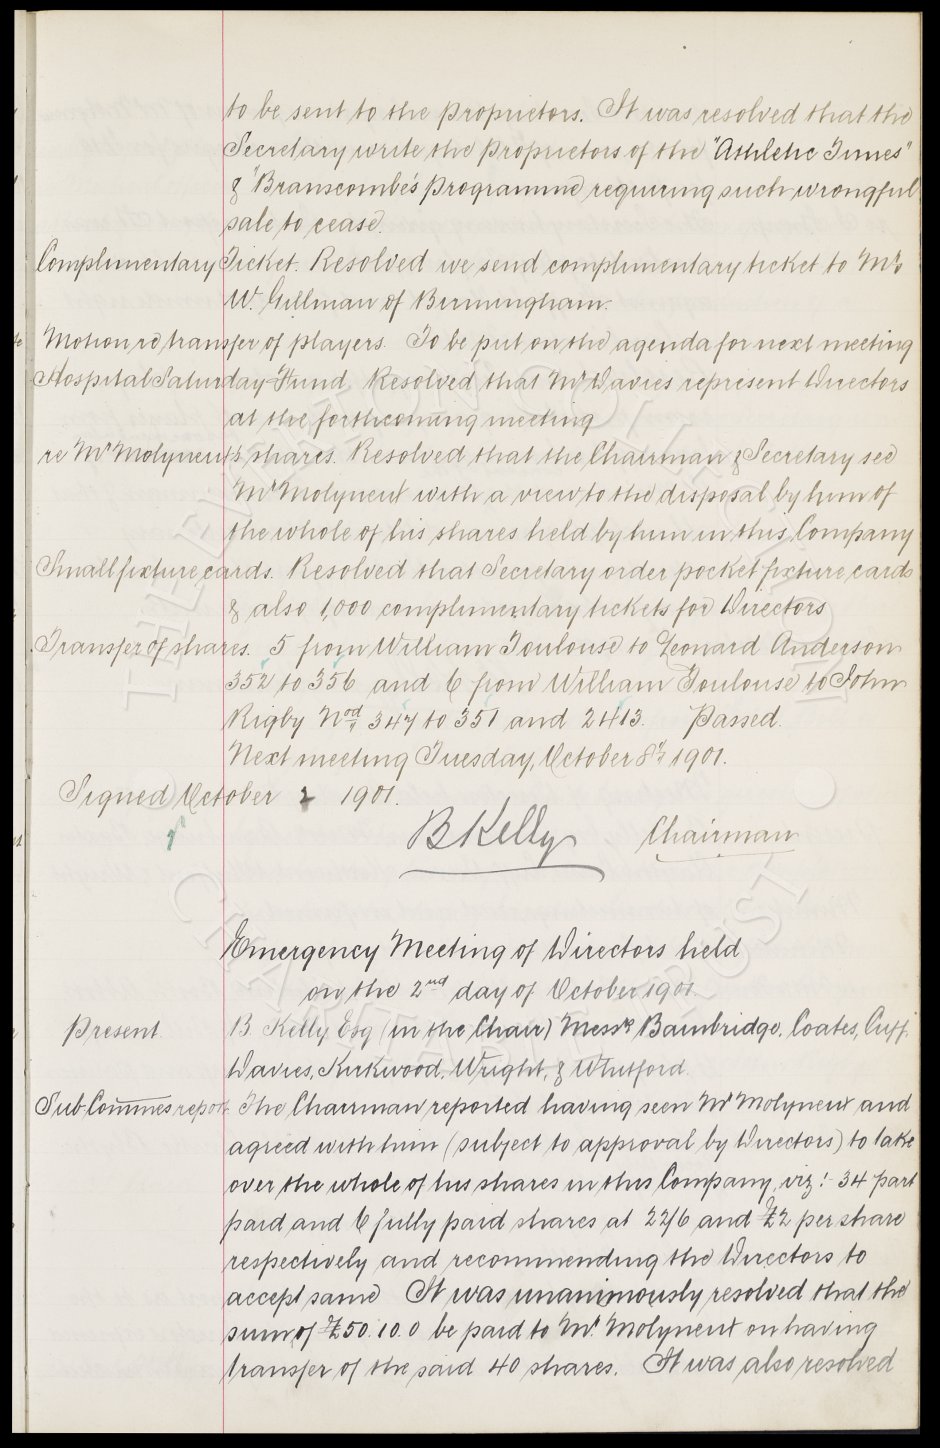 to be sent to the proprietors. It was resolved that the
Secretary write the proprietors of the "Athletic Times"
& "Branscombe's programme requiring such wrongful
sale to cease.
Complimentary Ticket. Resolved we send complimentary ticket to Mr
W. Gillman of Birmingham.
Motion re transfer of players. To be put on the agenda for next meeting
Hospital Saturday Fund. Resolved that Mr Davies represent Directors
at the forthcoming meeting
re Mr Molyneux's shares. Resolved that the Chairman & Secretary see
Mr Molyneux with a view to the disposal by him of
the whole of his shares held by him in this Company
Small fixture cards. Resolved that Secretary order pocket fixture cards
& also 1,000 complimentary tickets for Directors
Transfer of shares. 5 from William Toulouse to Leonard Anderson
352 to 356 and 6 from William Toulouse to John
Rigby Nod 347 to 351 and 2413. Passed.
Next meeting Tuesday, October 8th 1901.
Signed October 2 1901.
B Kelly Chairman
Emergency Meeting of Directors held
on the 2nd day of October 1901
Present. B. Kelly Esq (in the Chair) Messrs Bainbridge, Coates, Cuff,
Davies, Kirkwood, Wright, & Whitford.
Sub-Commes report. The Chairman reported having seen Mr Molyneux and
agreed with him (subject to approval by Directors) to take
over the whole of his shares in this Company, viz:- 34 part
paid and 6 fully paid shares at 22/6 and £2 per share
respectively and recommending the Directors to
accept same It was unanimously resolved that the
sum of £50.10.0 be paid to Mr. Molyneux on having
transfer of the said 40 shares. It was also resolved